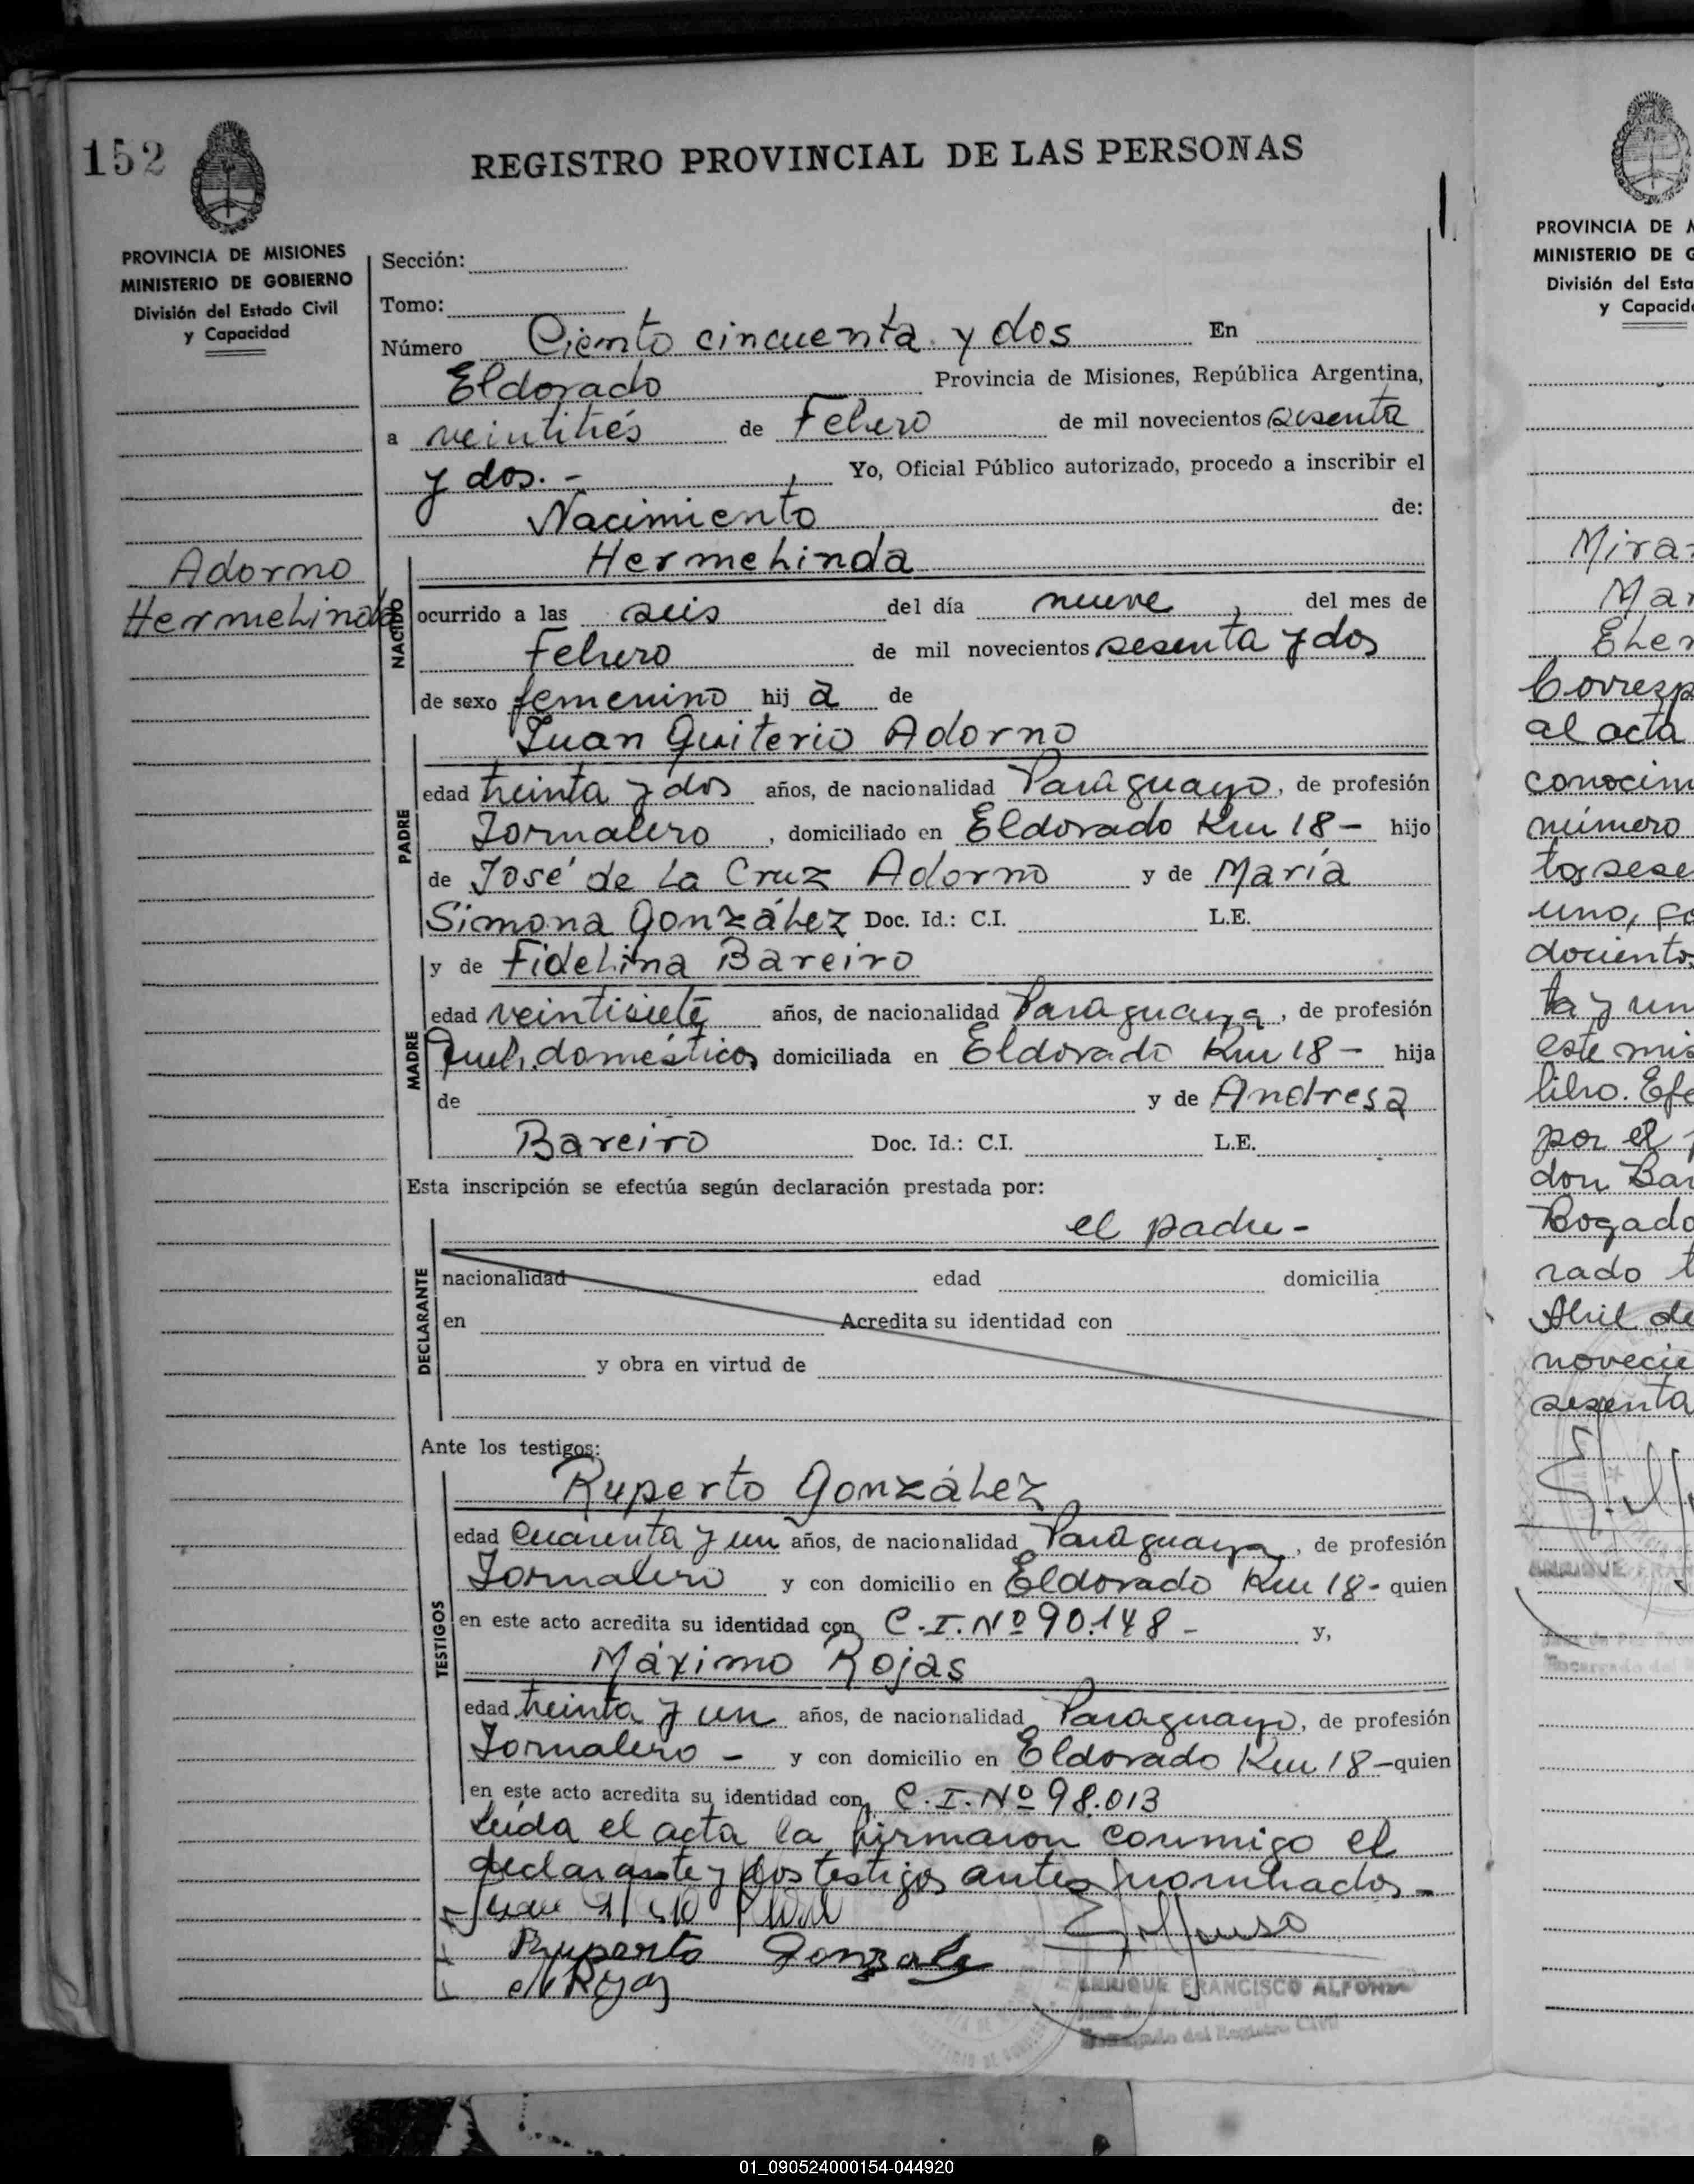 152
REGISTRO PROVINCIAL DE LAS PERSONAS
PROVINCIA DE MISIONES
MINISTERIO DE GOBIERNO
División del Estado Civil
y Capacidad
Adorno
Hermelinda
Sección:
Tomo:
Número Ciento cincuenta y dos En
Eldorado Provincia de Misiones, República Argentina,
a veintitrés de Febrero de mil novecientos sesenta
y dos.- Yo, Oficial Público autorizado, procedo a inscribir el
Nacimiento de:
NACIDO
Hermelinda
ocurrido a las seis del día nueve, del mes de
Febrero de mil novecientos sesenta y dos
de sexo femenino hij a de
PADRE
Juan Quiterio Adorno
edad treinta y dos años, de nacionalidad Paraguayo, de profesión
Jornalero, domiciliado en Eldorado Km 18- hijo
de José de La Cruz Adorno y de María
Simona González Doc. Id.: C.I. L.E.
MADRE
y de Fidelina Bareiro
edad veintisiete años, de nacionalidad Paraguaya, de profesión
Queh. domésticos domiciliada en Eldorado Km 18- hija
de y de Andresa
Bareiro Doc. Id.: C.I. L.E.
Esta inscripción se efectúa según declaración prestada por:
DECLARANTE
el padre-
nacionalidad edad domicilia
en Acredita su identidad con
y obra en virtud de
Ante los testigos:
TESTIGOS
Ruperto González
edad cuarenta y un años, de nacionalidad Paraguaya, de profesión
Jornalero y con domicilio en Eldorado Km 18- quien
en este acto acredita su identidad con C.I. Nº 90.148- y,
Máximo Rojas
edad treinta y un años, de nacionalidad Paraguayo, de profesión
Jornalero - y con domicilio en Eldorado Km 18- quien
en este acto acredita su identidad con C.I. Nº 98.013
Leída el acta la firmaron conmigo el
declarante y los testigos antes nombrados-
Ruperto Gonzale
M Rojas
ENRIQUE FRANCISCO ALFONSO
Encargado del Registro Civil
PROVINCIA DE M
MINISTERIO DE G
División del Esta
y Capacid
Mira
Mar
Elen
Corresp
al acta
conocim
número
tos sese
uno, fo
docientos
ta y un
este mis
libro. Efe
por el p
don Bar
Bogado
rado t
Abril de
novecie
sesenta
01_090524000154-044920